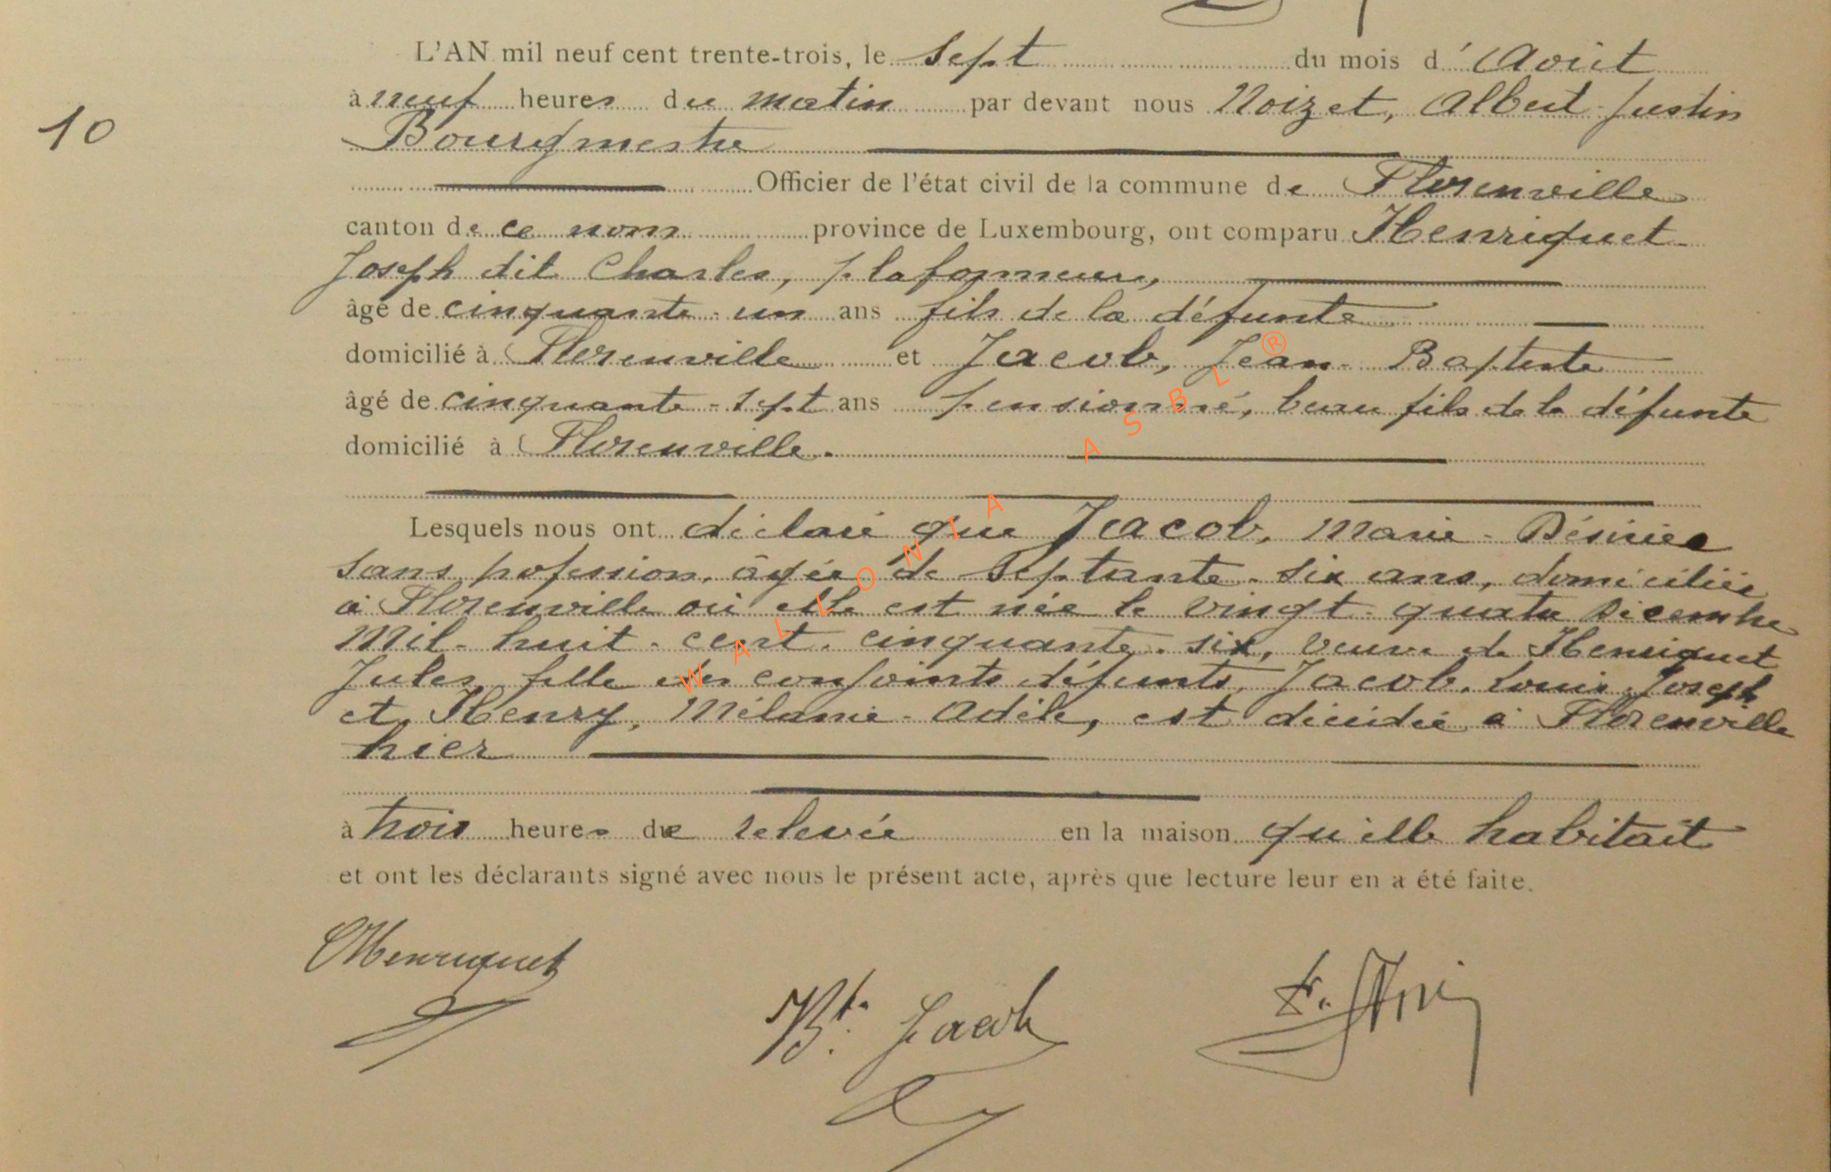 L'AN mil neuf cent trente-trois, le sept du mois d'Août
10
à neuf heures du matin par devant nous Noizet, Albert-Justin
Bourgmestre
Officier de l'état civil de la commune de Florenville
canton de ce nom province de Luxembourg, ont comparu Henriquet
Joseph dit Charles, plafonneur,
âgé de cinquante-un ans fils de la défunte
domicilié à Florenville et Jacob, Jean-Baptiste
âgé de cinquante-sept ans pensionné, beau fils de la défunte
domicilié à Florenville.
Lesquels nous ont déclaré que Jacob, Marie-Désirée
sans profession, âgée de septante-six ans, domiciliée
à Florenville où elle est née le vingt-quatre Décembre
mil-huit-cent-cinquante-six, veuve de Henriquet
Jules, fille des conjoints défunts, Jacob, Louis-Joseph
et Henry, Mélanie-Adèle, est décédée à Florenville
hier
à trois heures de relevée en la maison qu'elle habitait
et ont les déclarants signé avec nous le présent acte, après que lecture leur en a été faite.
CHenriquet
JBte Jacob
WALLONIA ASBL ®